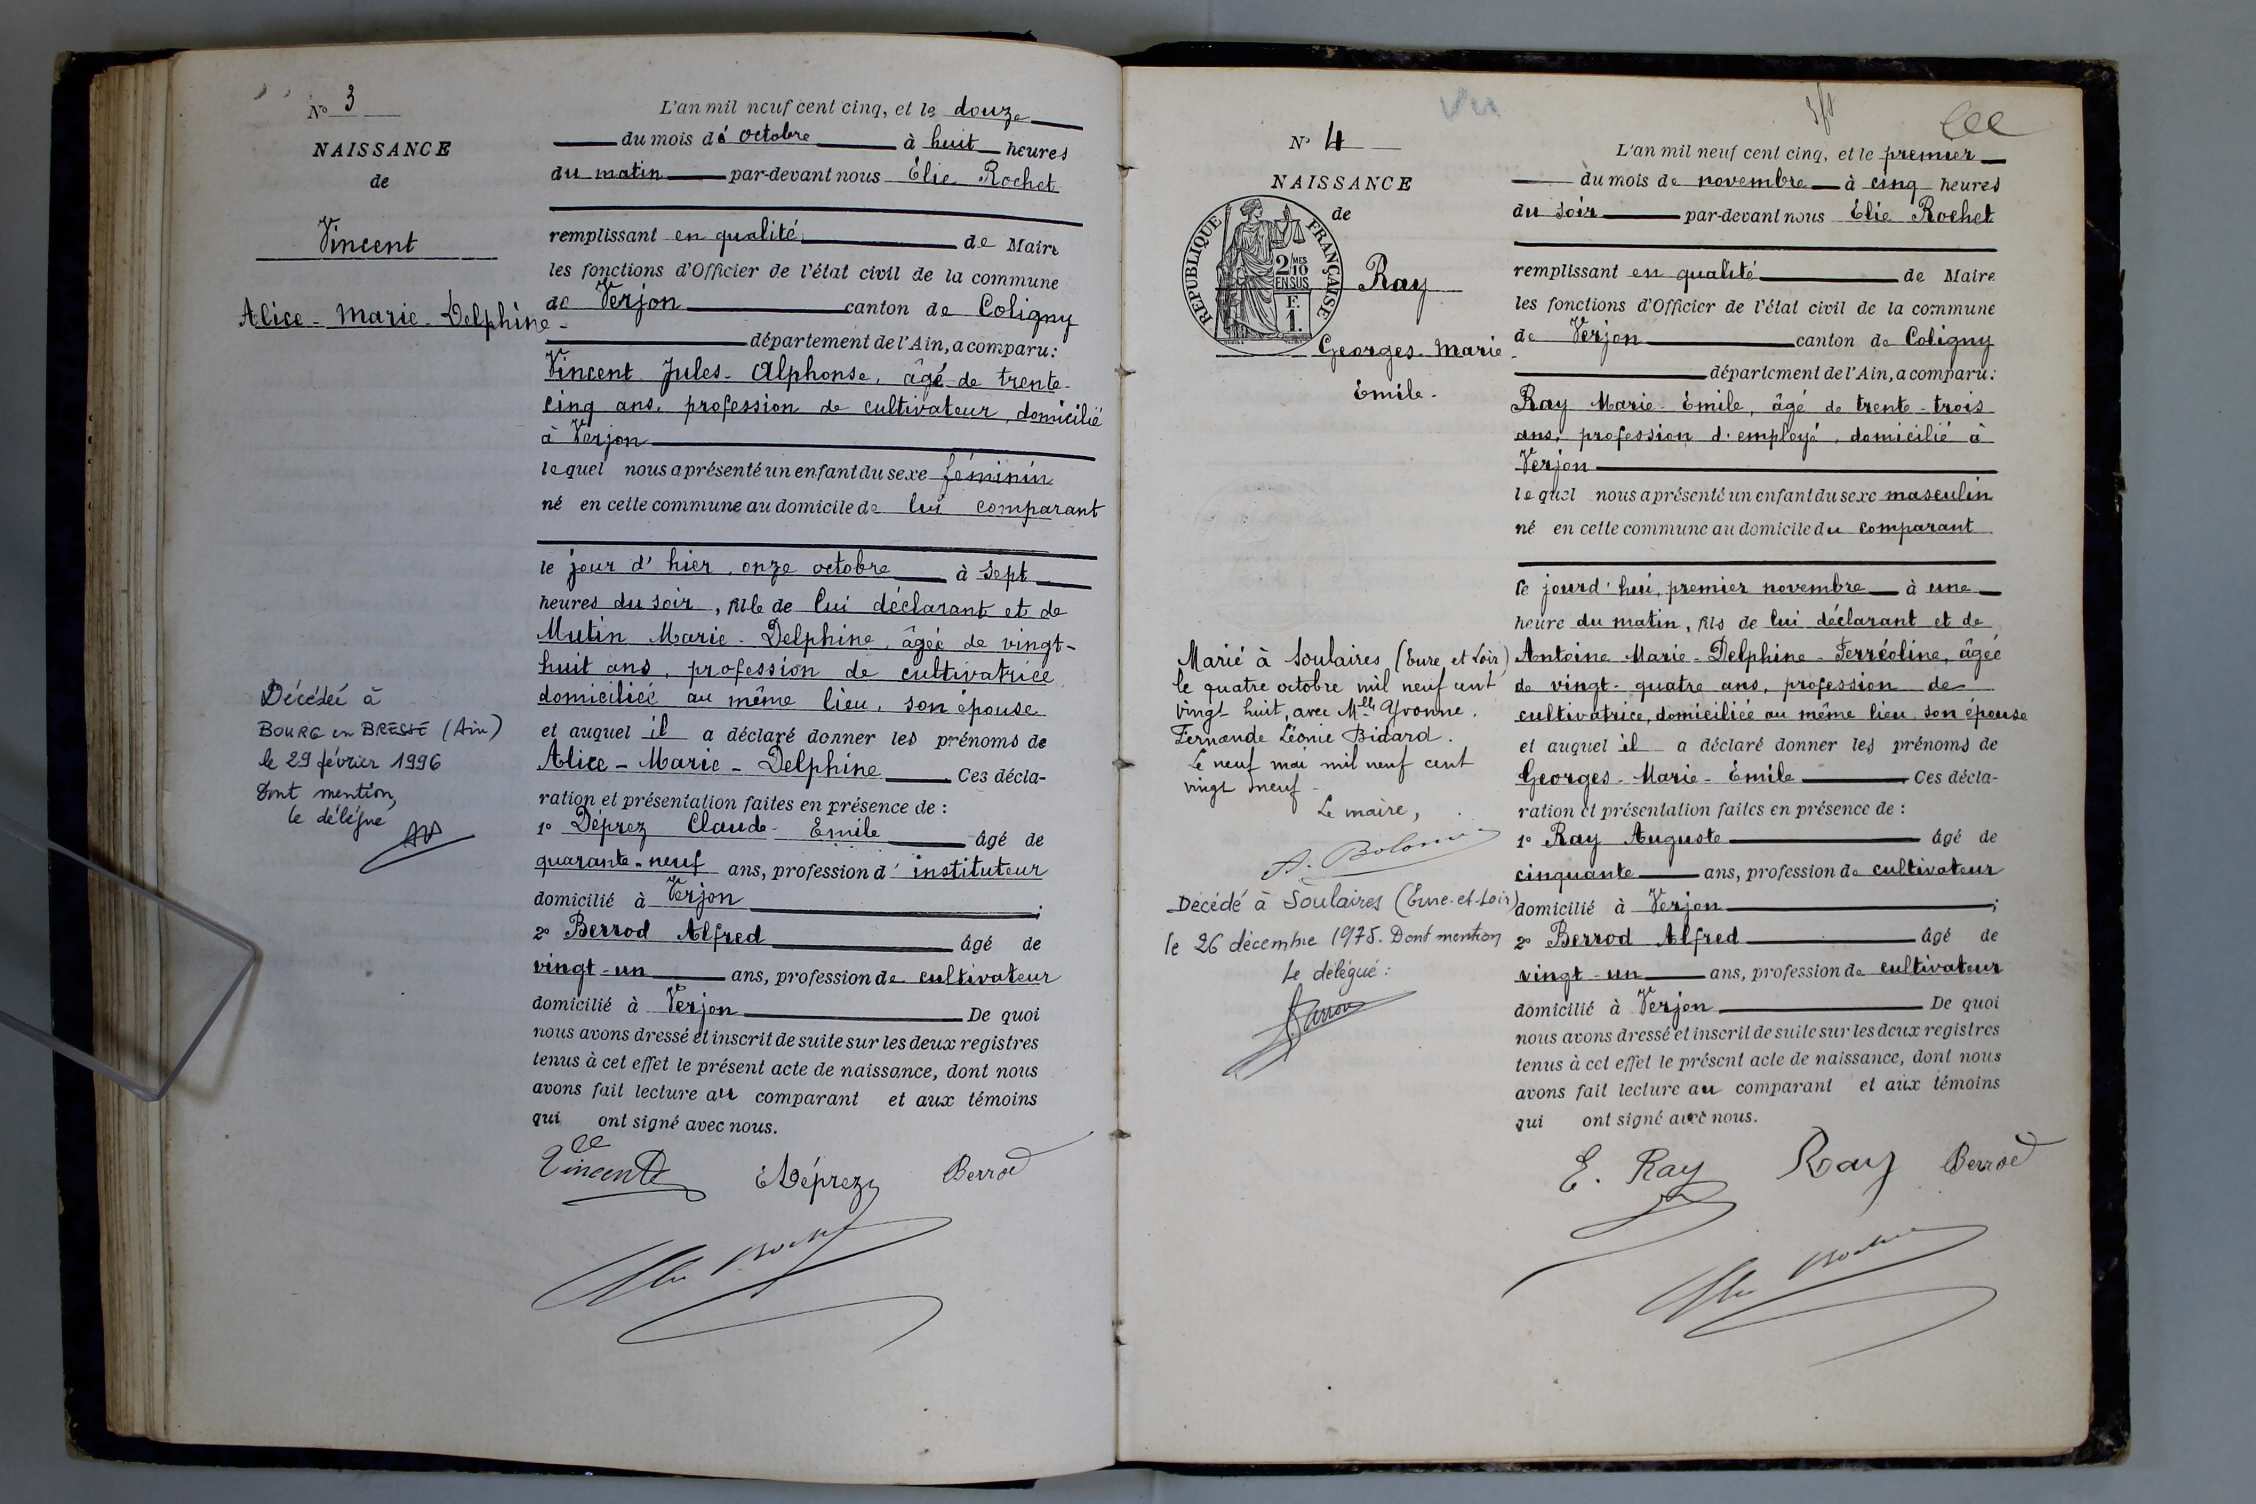 N° 3
NAISSANCE
de
Vincent
Alice - Marie - Delphine -
Décédée à
BOURG en BRESSE (Ain)
le 29 février 1996
Dont mention,
le délégué
L'an mil neuf cent cinq, et le douze
du mois d' octobre à huit heures
du matin par-devant nous Élie Rochet
remplissant en qualité de Maire
les fonctions d'Officier de l'état civil de la commune
de Verjon canton de Coligny
département de l'Ain, a comparu :
Vincent Jules - Alphonse, âgé de trente-
cinq ans, profession de cultivateur, domicilié
à Verjon
lequel nous a présenté un enfant du sexe féminin
né en cette commune au domicile de lui comparant
le jour d'hier, onze octobre à sept
heures du soir, fille de lui déclarant et de
Mutin Marie - Delphine, âgée de vingt-
huit ans, profession de cultivatrice
domiciliée au même lieu, son épouse
et auquel il a déclaré donner les prénoms de
Alice - Marie - Delphine Ces décla-
ration et présentation faites en présence de :
1° Déprez Claude - Emile âgé de
quarante-neuf ans, profession d'instituteur
domicilié à Verjon ;
2° Berrod Alfred âgé de
vingt-un ans, profession de cultivateur
domicilié à Verjon De quoi
nous avons dressé et inscrit de suite sur les deux registres
tenus à cet effet le présent acte de naissance, dont nous
avons fait lecture au comparant et aux témoins
qui ont signé avec nous.
Vincent EDéprez Berrod
Elie Rochet
Vu
N° 4
NAISSANCE
de
RÉPUBLIQUE FRANÇAISE
2/10 MES
EN SUS
F.
1.
Ray
Georges - Marie -
Emile -
Marié à Soulaires (Eure et Loir)
le quatre octobre mil neuf cent
vingt huit, avec Mlle Yvonne,
Fernande Léonie Bidard.
Le neuf mai mil neuf cent
vingt neuf -
Le maire,
Décédé à Soulaires (Eure-et-Loir)
le 26 décembre 1975. Dont mention
Le délégué :
L'an mil neuf cent cinq, et le premier
du mois de novembre à cinq heures
du soir par-devant nous Élie Rochet
remplissant en qualité de Maire
les fonctions d'Officier de l'état civil de la commune
de Verjon canton de Coligny
département de l'Ain, a comparu :
Ray Marie - Emile, âgé de trente-trois
ans, profession d'employé, domicilié à
Verjon
lequel nous a présenté un enfant du sexe masculin
né en cette commune au domicile du comparant
le jourd'hui, premier novembre à une
heure du matin, fils de lui déclarant et de
Antoine Marie - Delphine - Ferréoline, âgée
de vingt-quatre ans, profession de
cultivatrice, domiciliée au même lieu son épouse
et auquel il a déclaré donner les prénoms de
Georges - Marie - Émile Ces décla-
ration et présentation faites en présence de :
1° Ray Auguste âgé de
cinquante ans, profession de cultivateur
domicilié à Verjon ;
2° Berrod Alfred âgé de
vingt-un ans, profession de cultivateur
domicilié à Verjon De quoi
nous avons dressé et inscrit de suite sur les deux registres
tenus à cet effet le présent acte de naissance, dont nous
avons fait lecture au comparant et aux témoins
qui ont signé avec nous.
E. Ray Ray Berrod
Elie Rochet